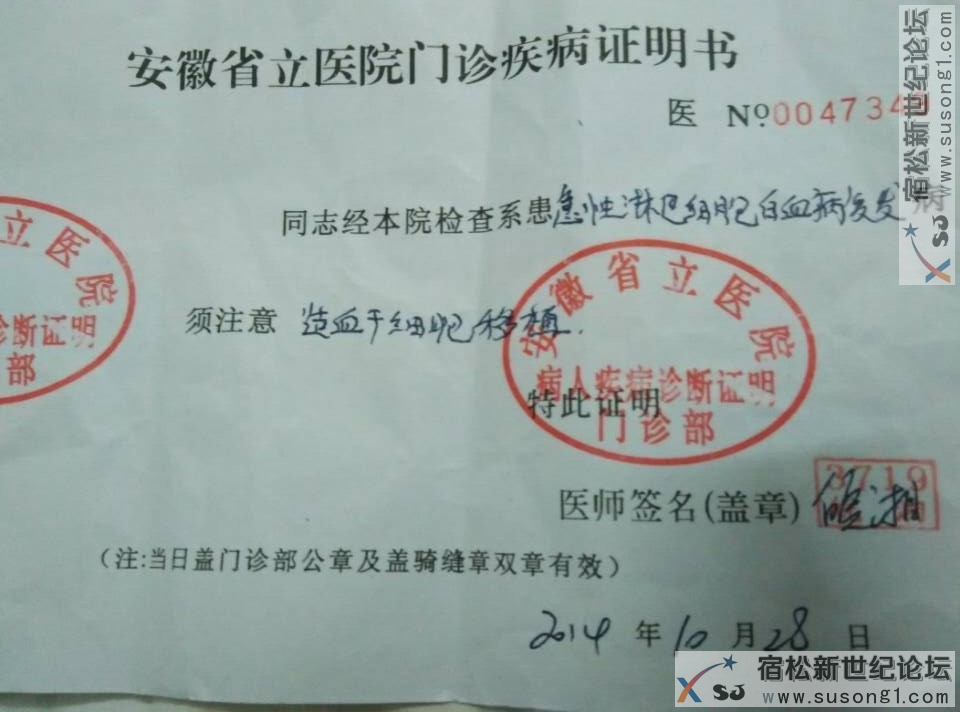 安徽省立医院门诊疾病证明书
医 № 004734
同志经本院检查系患急性淋巴细胞白血病复发病
须注意 造血干细胞移植.
特此证明
医师签名(盖章)
(注:当日盖门诊部公章及盖骑缝章双章有效)
2014 年 10 月 28 日
立医院
诊断证明
部
安徽省立医院
病人疾病诊断证明
门诊部
3719
宿松新世纪论坛
www.susong1.com
XSJ
宿松新世纪论坛
www.susong1.com
XSJ